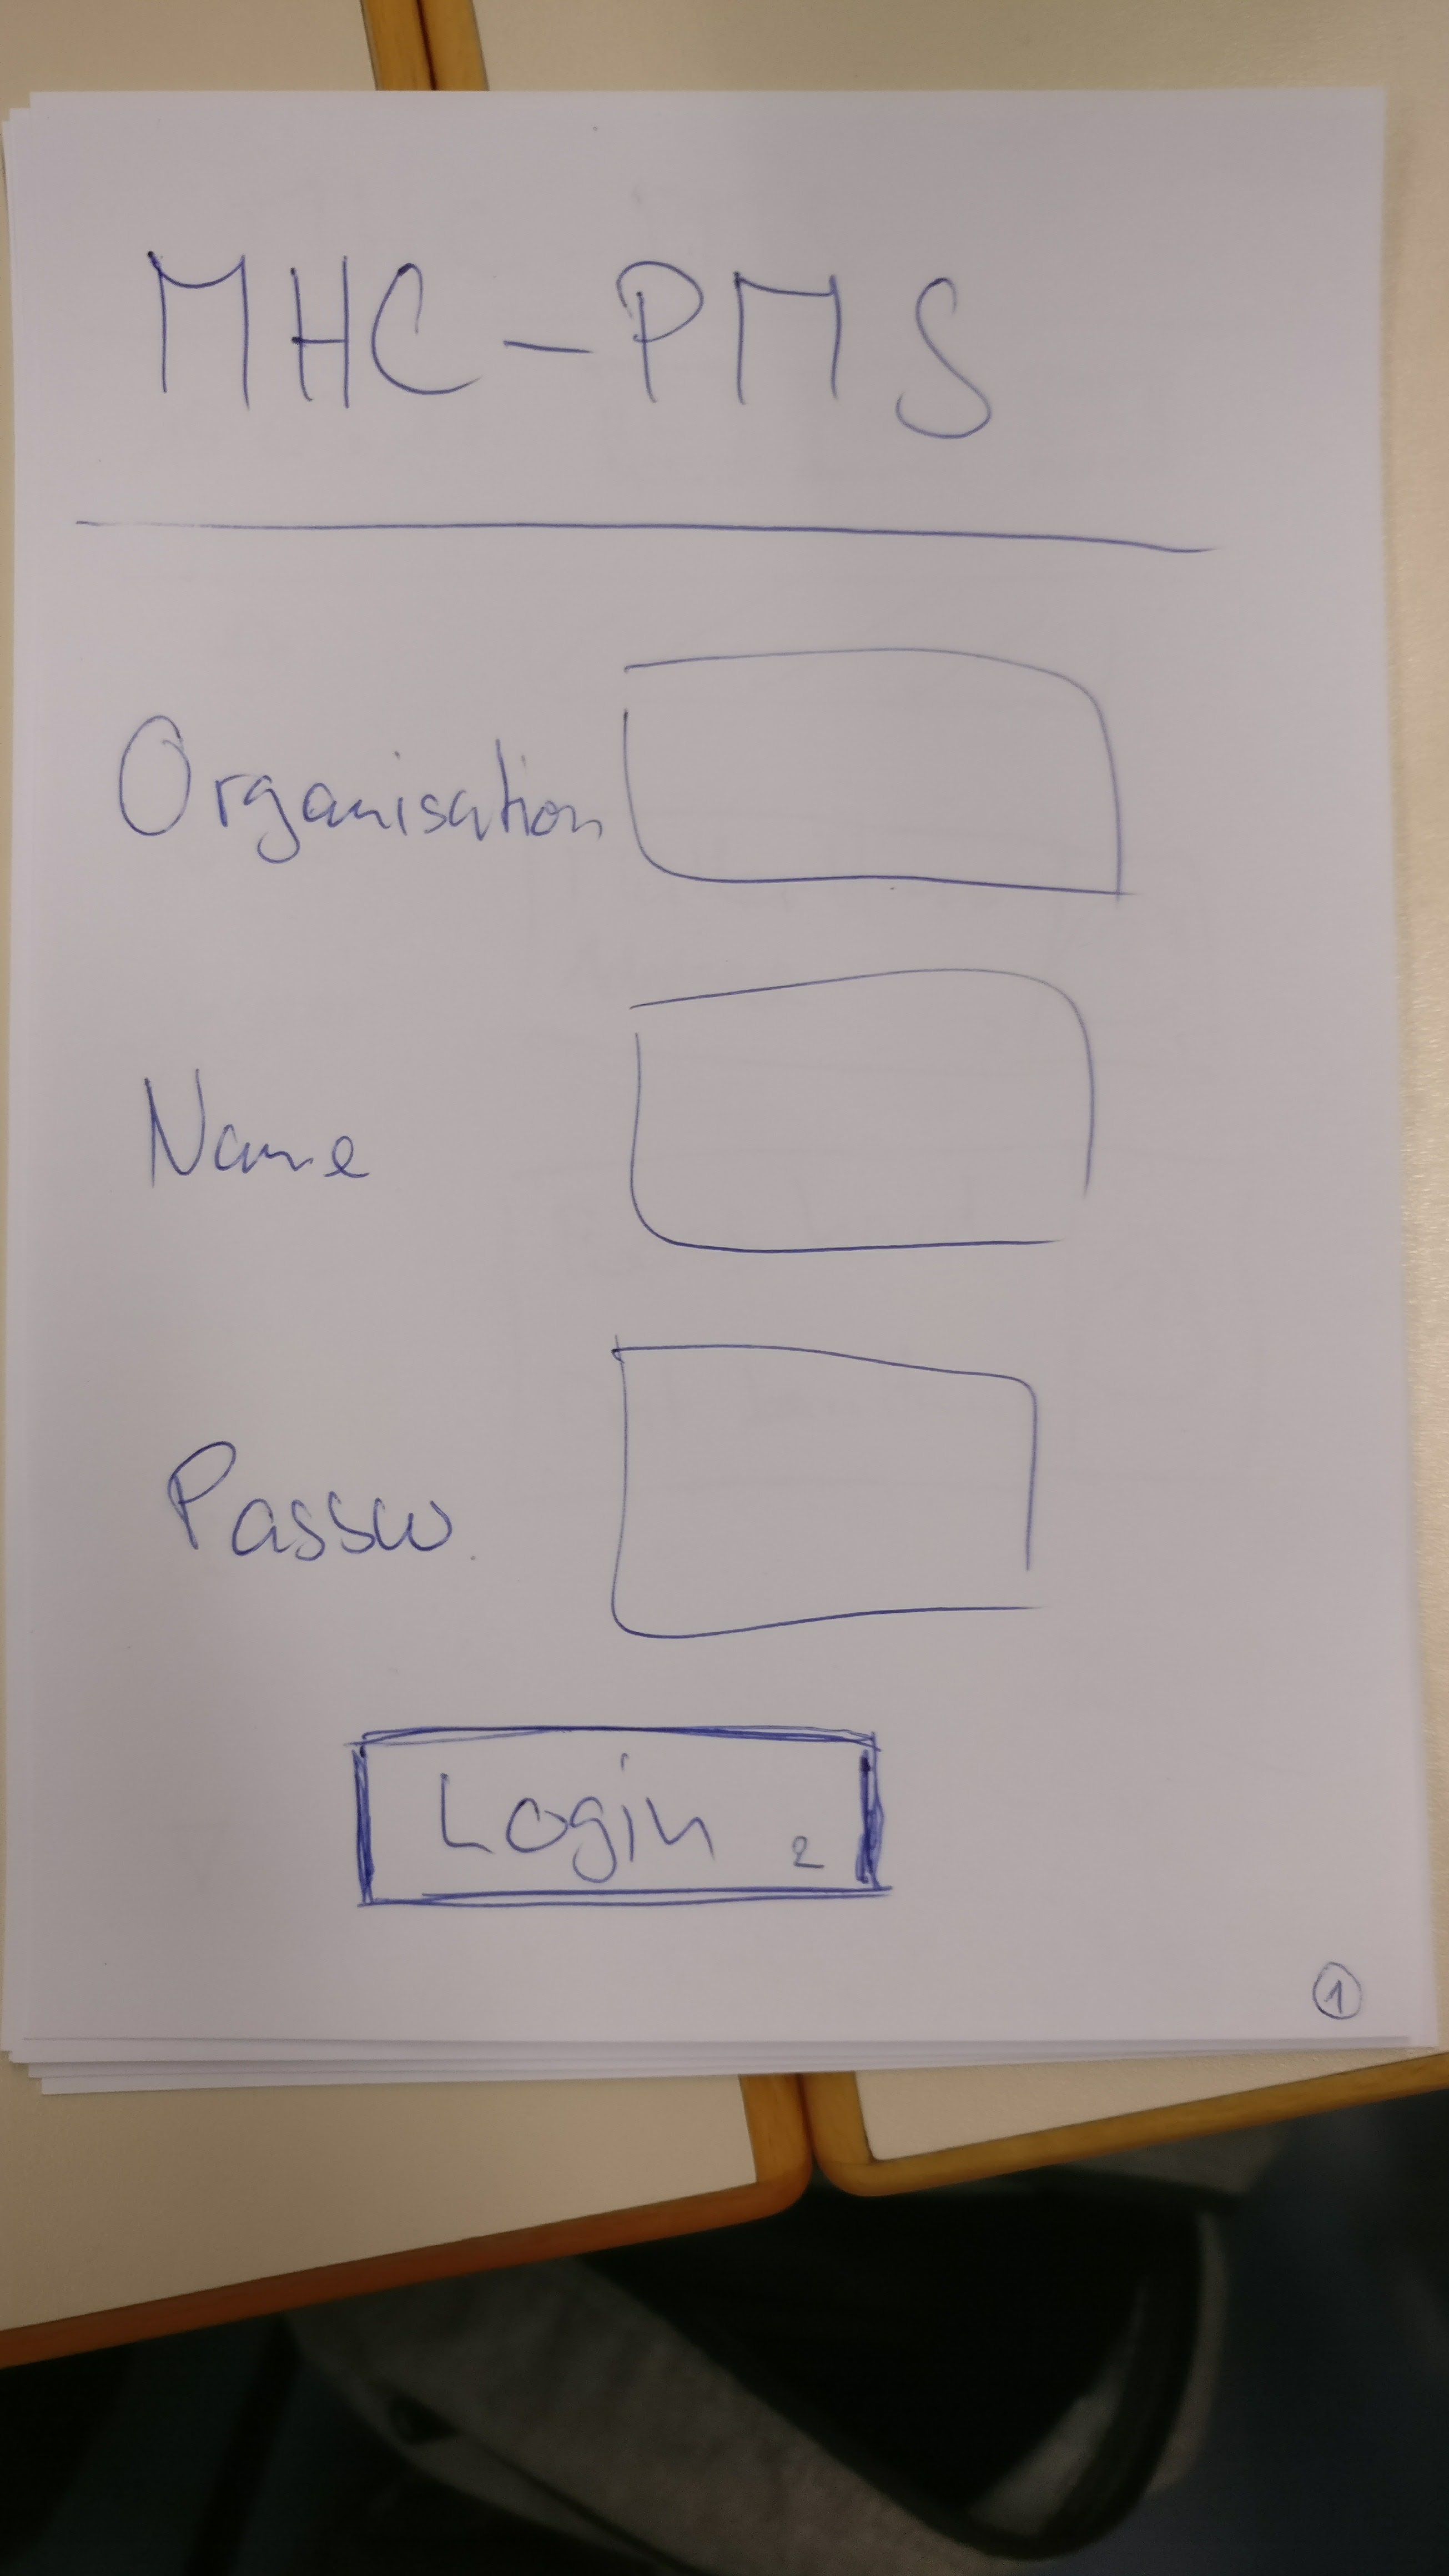 MHC-PMS
Organisation
Name
Passw.
Login 2
1